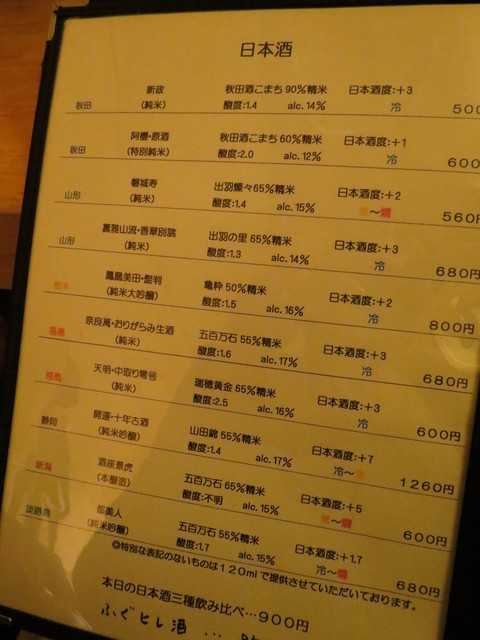 日本酒
秋田 新政 秋田酒こまち 90%精米 日本酒度:+3
(純米) 酸度:1.4 alc.14% 冷 500
秋田 阿櫻・原酒 秋田酒こまち 60%精米 日本酒度:+1
(特別純米) 酸度:2.0 alc.12% 冷 600
山形 磐城寿 出羽燦々65%精米 日本酒度:+2
(純米) 酸度:1.4 alc.15% ～燗 560円
山形 裏雅山流・香華別誂 出羽の里 65%精米 日本酒度:+3
(純米) 酸度:1.3 alc.14% 冷 680円
栃木 鳳凰美田・髭判 亀粋 50%精米 日本酒度:+2
(純米大吟醸) 酸度:1.5 alc.16% 冷 800円
福島 奈良萬・おりがらみ生酒 五百万石 55%精米 日本酒度:+3
(純米) 酸度:1.6 alc.17% 冷 680円
福島 天明・中取り零号 瑞穂黄金 65%精米 日本酒度:+3
(純米) 酸度:2.5 alc.16% 冷 600円
静岡 開運・十年古酒 山田錦 55%精米 日本酒度:+7
(純米吟醸) 酸度:1.4 alc.17% 冷～ 1260円
新潟 酒座景虎 五百万石 65%精米 日本酒度:+5
(本醸造) 酸度:不明 alc.15% ～燗 600円
淡路島 都美人 五百万石 55%精米 日本酒度:+1.7
(純米吟醸) 酸度:1.7 alc.15% 冷～燗 680円
◎特別な表記のないものは120mlで提供させていただいております。
本日の日本酒三種飲み比べ…900円
ふぐヒレ酒 …